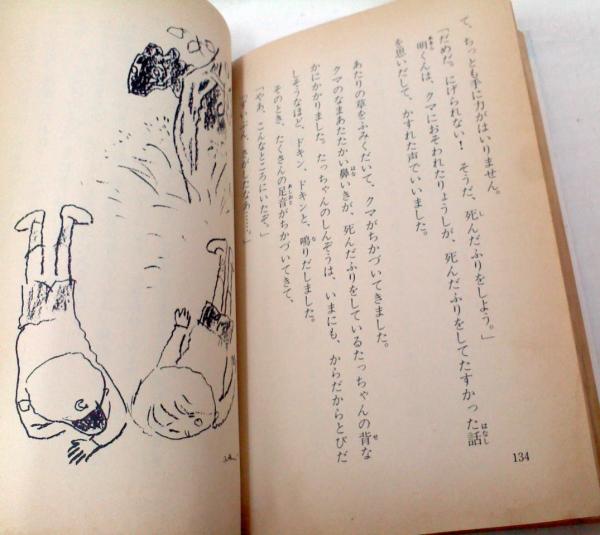 て、ちっとも手に力がはいりません。
「だめだ。にげられない！　そうだ、死んだふりをしよう。」
明くんは、クマにおそわれたりょうしが、死んだふりをしてたすかった話
を思いだして、かすれた声でいいました。
あたりの草をふみくだいて、クマがちかづいてきました。
クマのなまあたたかい鼻いきが、死んだふりをしているたっちゃんの背な
かにかかりました。たっちゃんのしんぞうは、いまにも、からだからとびだ
しそうなほど、ドキン、ドキンと、鳴りだしました。
そのとき、たくさんの足音がちかづいてきて、
「やあ、こんなところにいたぞ。」
134